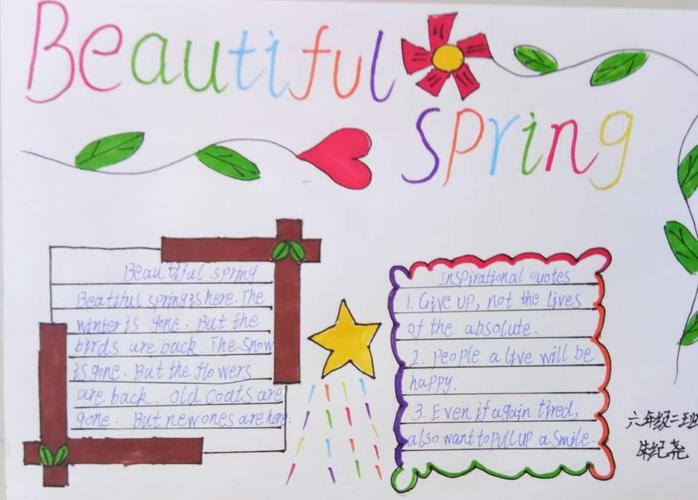 Beautiful
Spring
Beautiful spring
Beatiful spring is here. The
winter is gone. But the
birds are back. The snow
is gone. But the flowers
are back. old coats are
gone. But new ones are here.
Inspirational quotes
1. Give up, not the lives
of the absolute.
2. People a live will be
happy.
3. Even if again tired,
also want to pull up a smile.
六年级二班
朱纪尧